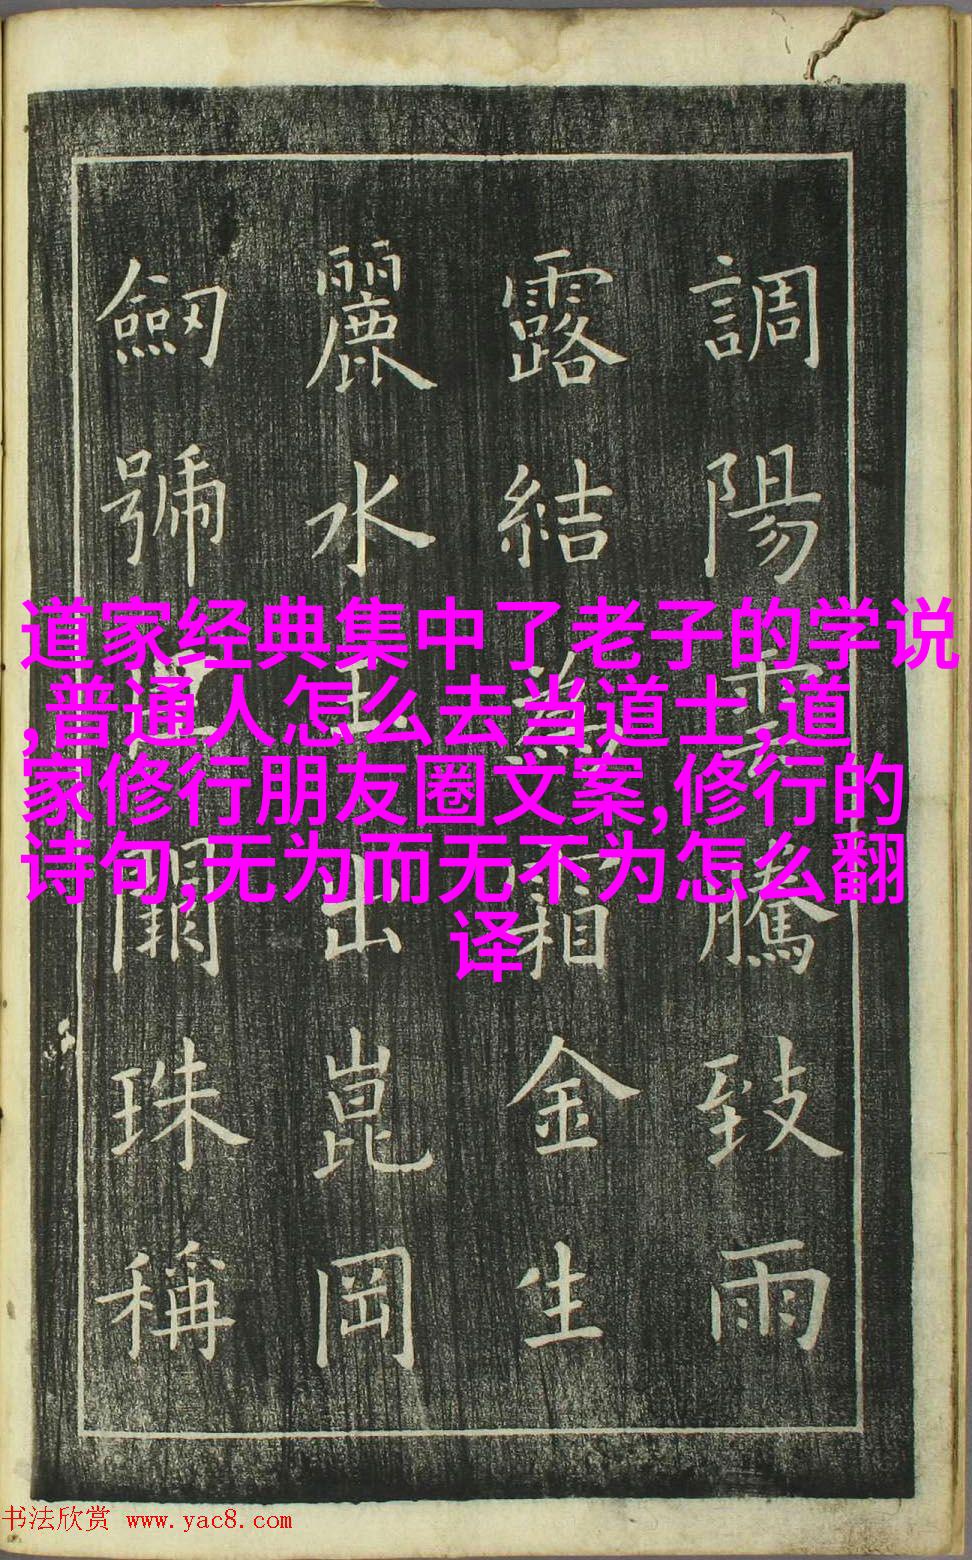 調陽雲騰致雨
露結爲霜金生
麗水玉出崑岡
劒號巨闕珠稱
道家经典集中了老子的学说
,普通人怎么去当道士,道
家修行朋友圈文案,修行的
诗句,无为而无不为怎么翻
译
书法欣赏 www.yac8.com